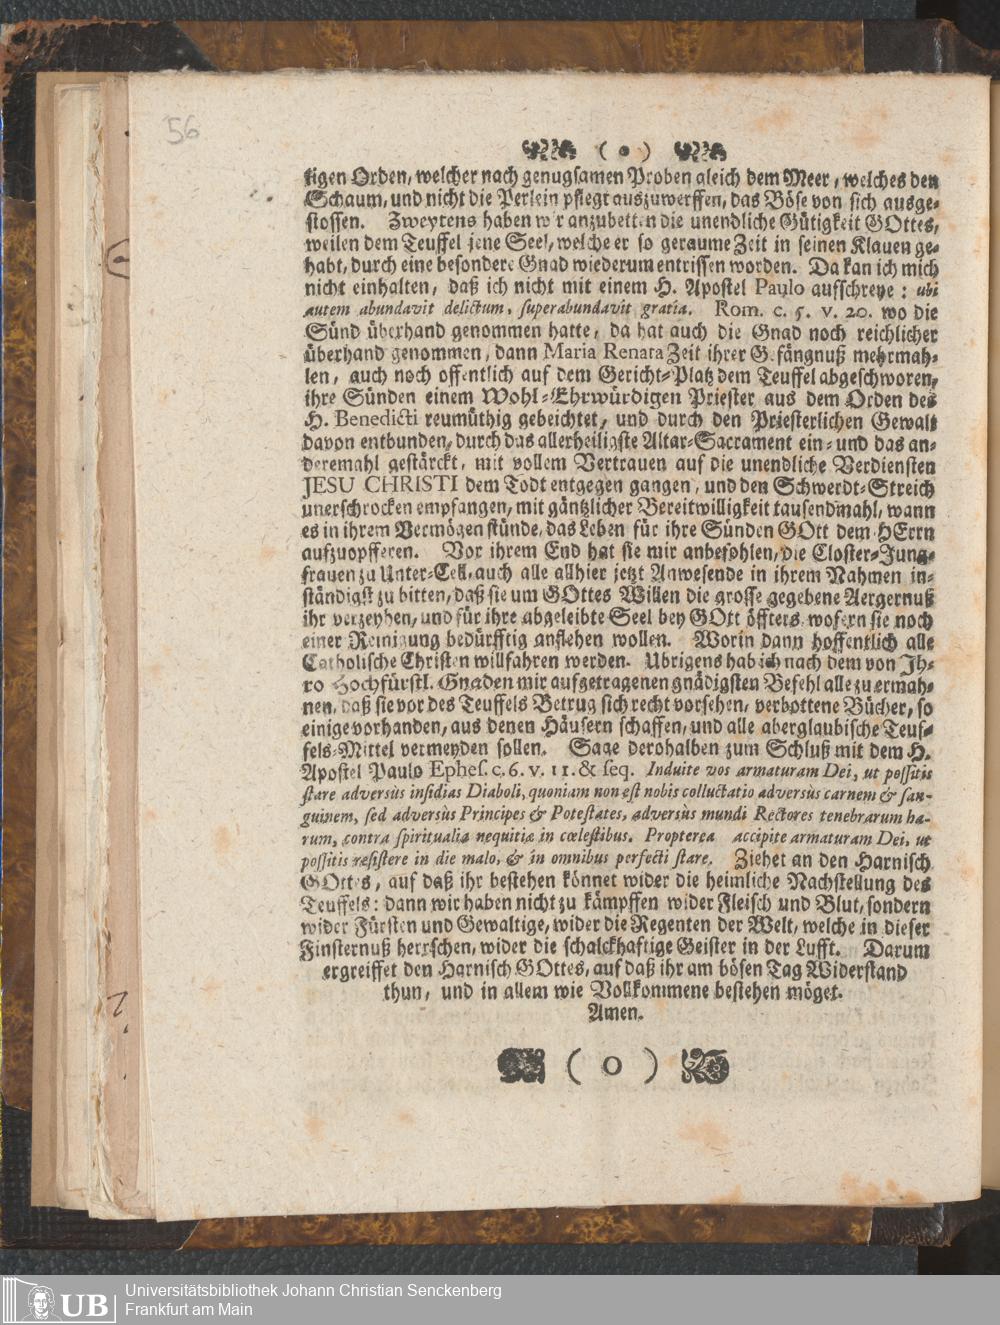 56
( o )
tigen Orden, welcher nach genugsamen Proben gleich dem Meer, welches den
Schaum, und nicht die Perlein pflegt auszuwerffen, das Böse von sich ausge-
stossen. Zweytens haben wir anzubetten die unendliche Gütigkeit GOttes,
weilen dem Teuffel jene Seel, welche er so geraume Zeit in seinen Klauen ge-
habt, durch eine besondere Gnad wiederum entrissen worden. Da kan ich mich
nicht einhalten, daß ich nicht mit einem H. Apostel Paulo aufschreye: ubi
autem abundavit delictum, superabundavit gratia. Rom. c. 5. v. 20. wo die
Sünd überhand genommen hatte, da hat auch die Gnad noch reichlicher
überhand genommen, dann Maria Renata Zeit ihrer Gefängnuß mehrmah-
len, auch noch offentlich auf dem Gericht-Platz dem Teuffel abgeschworen,
ihre Sünden einem Wohl-Ehrwürdigen Priester aus dem Orden des
H. Benedicti reumüthig gebeichtet, und durch den Priesterlichen Gewalt
davon entbunden, durch das allerheiligste Altar-Sacrament ein- und das an-
deremahl gestärckt, mit vollem Vertrauen auf die unendliche Verdiensten
JESU CHRISTI dem Todt entgegen gangen, und den Schwerdt-Streich
unerschrocken empfangen, mit gäntzlicher Bereitwilligkeit tausendmahl, wann
es in ihrem Vermögen stünde, das Leben für ihre Sünden GOtt dem HErrn
aufzuopfferen. Vor ihrem End hat sie mir anbefohlen, die Closter-Jung-
frauen zu Unter-Cell, auch alle allhier jetzt Anwesende in ihrem Nahmen in-
ständigst zu bitten, daß sie um GOttes Willen die grosse gegebene Aergernuß
ihr verzeyhen, und für ihre abgeleibte Seel bey GOtt öffters, wofern sie noch
einer Reinigung bedürfftig anflehen wollen. Worin dann hoffentlich alle
Catholische Christen willfahren werden. Ubrigens hab ich nach dem von Ih-
ro Hochfürstl. Gnaden mir aufgetragenen gnädigsten Befehl alle zu ermah-
nen, daß sie vor des Teuffels Betrug sich recht vorsehen, verbottene Bücher, so
einige vorhanden, aus denen Häusern schaffen, und alle aberglaubische Teuf-
fels-Mittel vermeyden sollen. Sage derohalben zum Schluß mit dem H.
Apostel Paulo Ephes. c. 6. v. 11. & seq. Induite vos armaturam Dei, ut possitis
stare adversùs insidias Diaboli, quoniam non est nobis colluctatio adversùs carnem & san-
guinem, sed adversùs Principes & Potestates, adversùs mundi Rectores tenebrarum ha-
rum, contra spiritualia nequitiæ in cœlestibus. Propterea accipite armaturam Dei, ut
possitis resistere in die malo, & in omnibus perfecti stare. Ziehet an den Harnisch
GOttes, auf daß ihr bestehen könnet wider die heimliche Nachstellung des
Teuffels: dann wir haben nicht zu kämpffen wider Fleisch und Blut, sondern
wider Fürsten und Gewaltige, wider die Regenten der Welt, welche in dieser
Finsternuß herrschen, wider die schalckhaftige Geister in der Lufft. Darum
ergreiffet den Harnisch GOttes, auf daß ihr am bösen Tag Widerstand
thun, und in allem wie Vollkommene bestehen möget.
Amen.
( O )
UB
Universitätsbibliothek Johann Christian Senckenberg
Frankfurt am Main